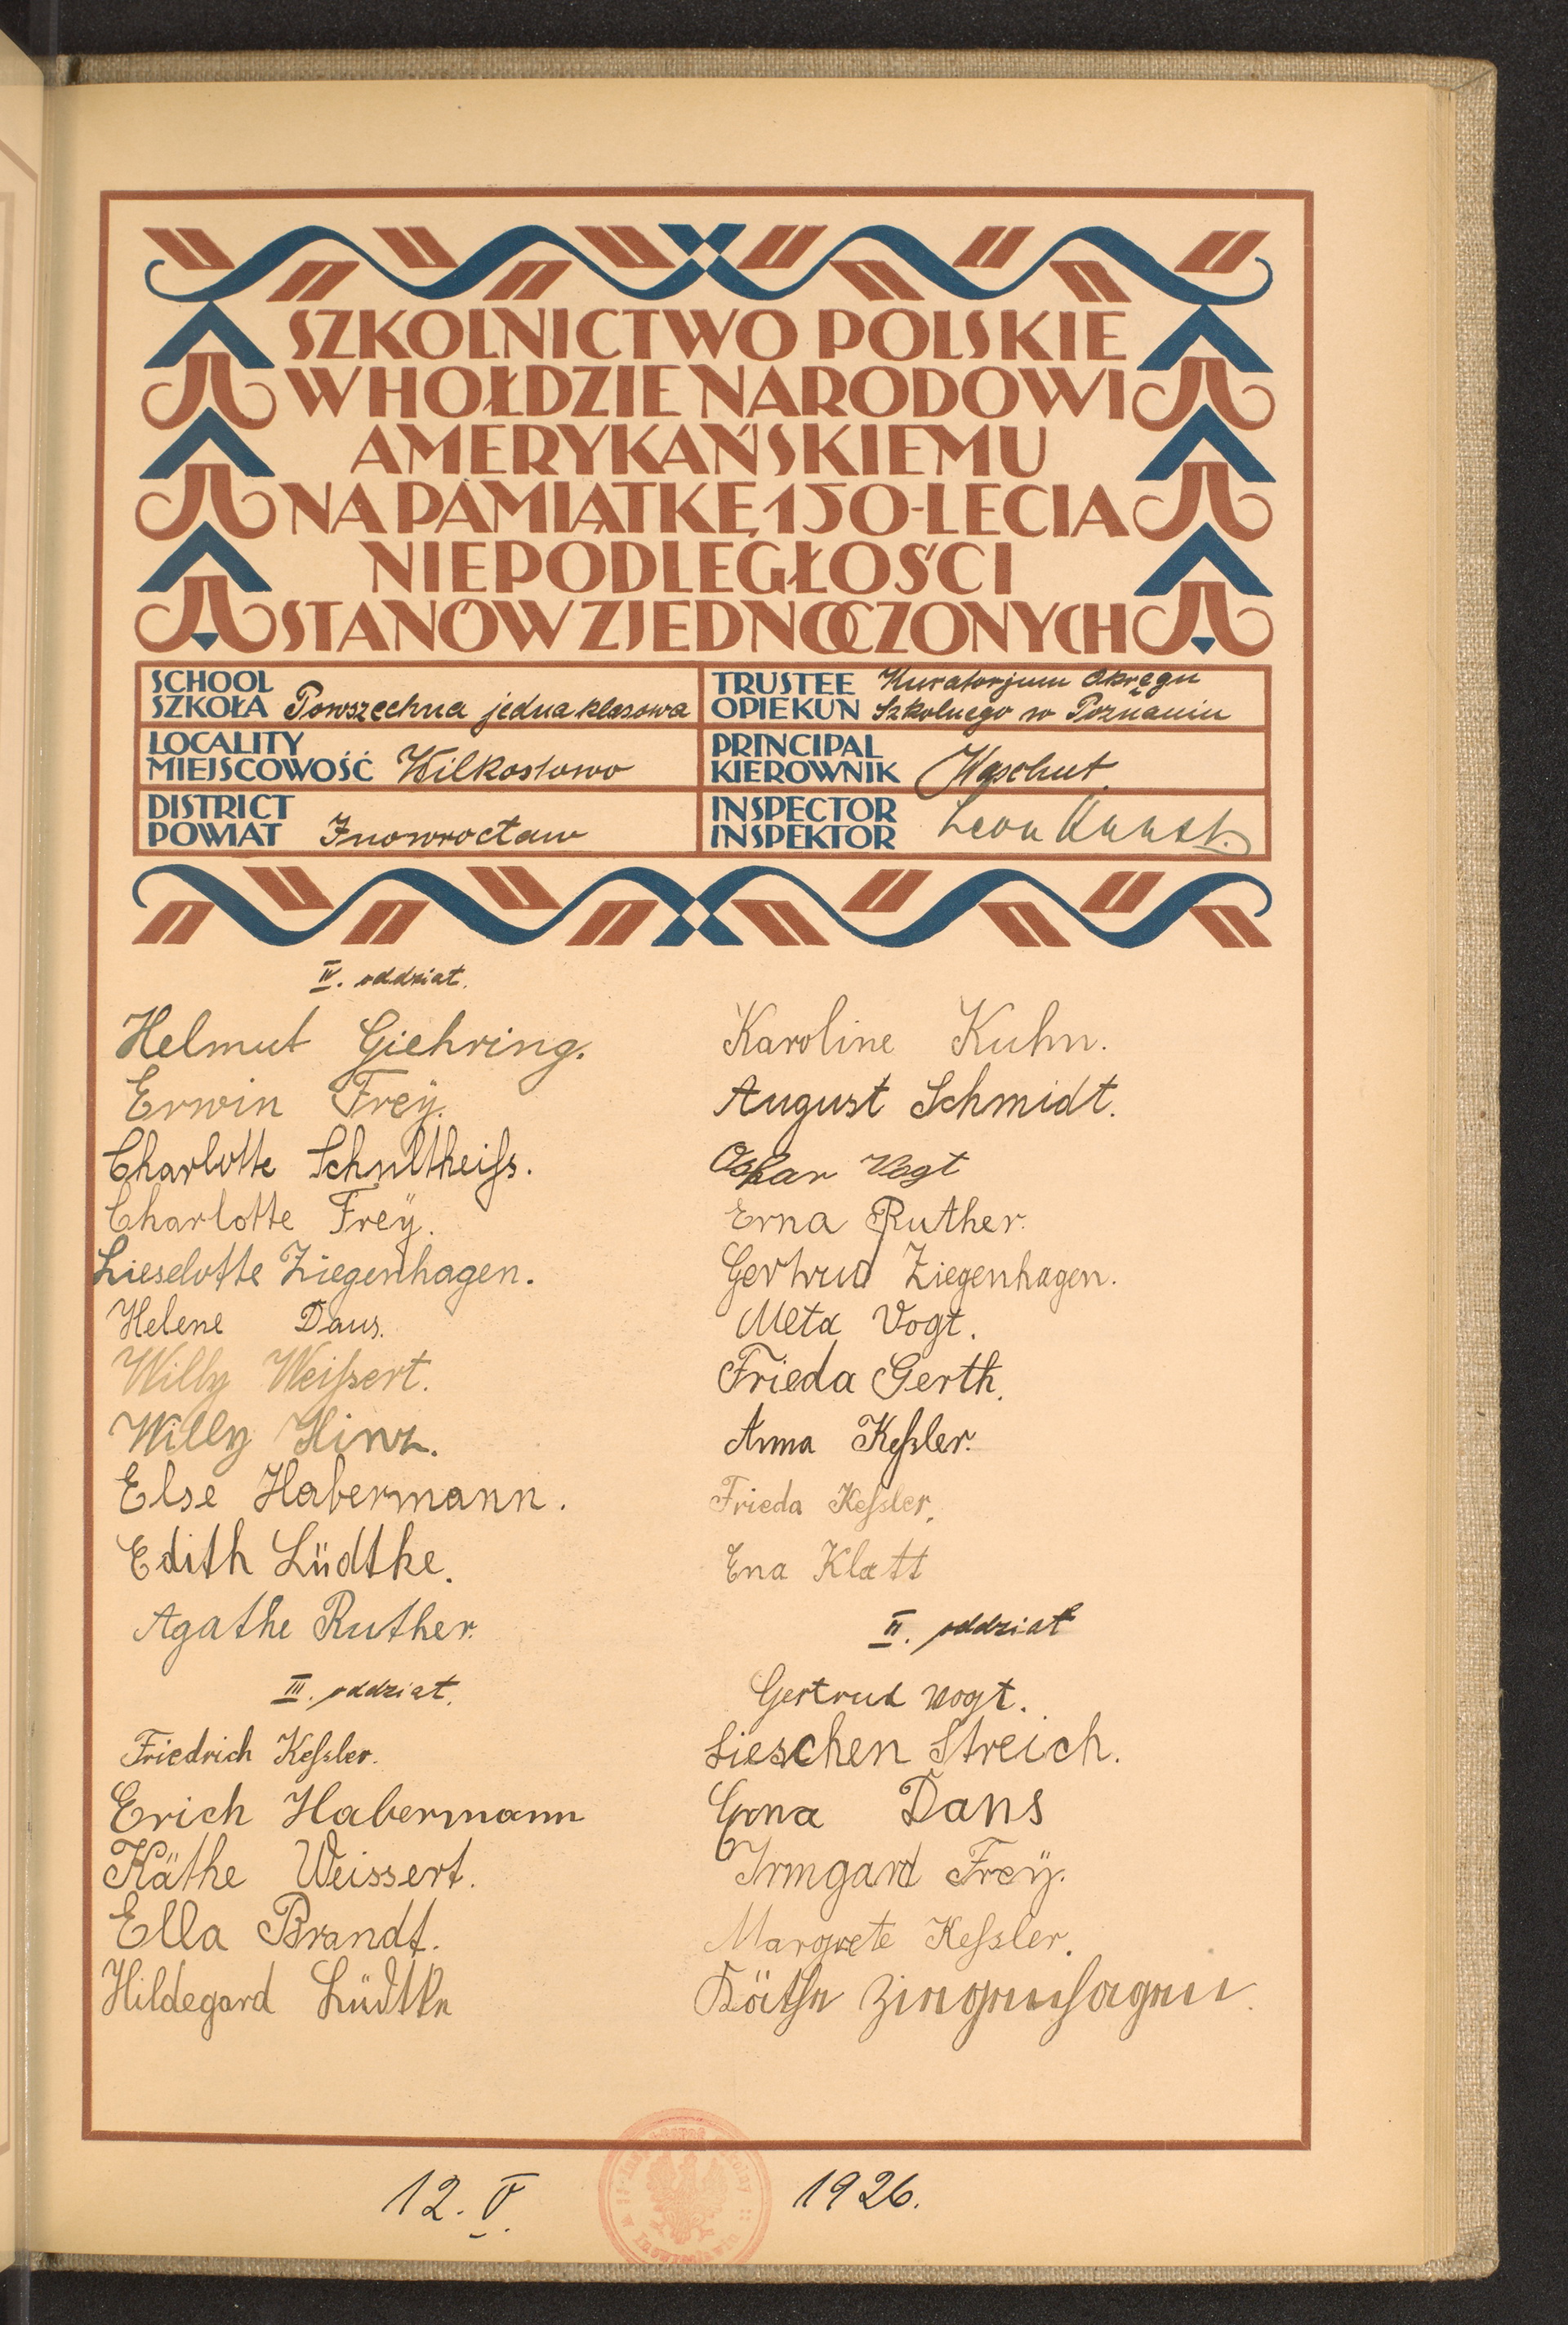 SZKOLNICTWO POLSKIE
W HOŁDZIE NARODOWI
AMERYKAŃSKIEMU
NA PAMIĄTKĘ 150-LECIA
NIEPODLEGŁOŚCI
STANÓW ZJEDNOCZONYCH
SCHOOL
SZKOŁA Powszechna jedna klasowa
TRUSTEE Kuratorjum Okręgu
OPIEKUN Szkolnego w Poznaniu
LOCALITY
MIEJSCOWOŚĆ Wilkostowo
PRINCIPAL
KIEROWNIK
DISTRICT
POWIAT Inowrocław
INSPECTOR
INSPEKTOR Leon
IV. oddział.
Helmut Giehring.
Erwin Freÿ.
Charlotte Schultheiſs.
Charlotte Freÿ.
Lieselotte Ziegenhagen.
Helene Daus.
Willy Weiſsert.
Willy Hinz.
Else Habermann.
Edith Lüdtke.
Agathe Ruther.
III. oddział.
Friedrich Keſsler.
Erich Habermann
Käthe Weissert.
Ella Brandt.
Hildegard Lüdtke
Karoline Kuhn.
August Schmidt.
Oskar Vogt
Erna Ruther.
Gertrud Ziegenhagen.
Meta Vogt.
Frieda Gerth.
Anna Keſsler.
Frieda Keſsler.
Ena Klatt
II. oddział
Gertrud Vogt.
Lieschen Streich.
Erna Daus
Irmgard Freÿ.
Margrete Keſsler.
Käthe Ziegenhagen
12. V. 1926.